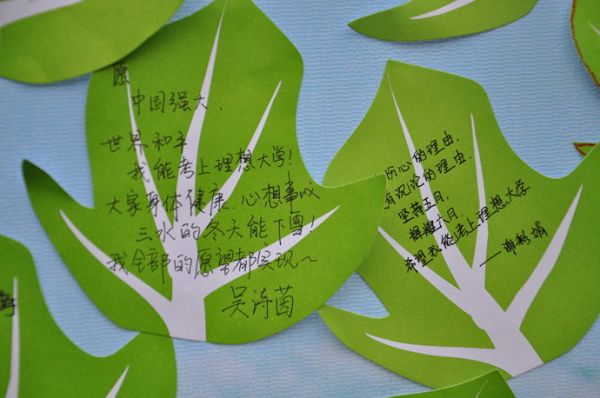 愿
中国强大,
世界和平
我能考上理想大学!
大家身体健康、心想事成
三水的冬天能下雪!
我全部的愿望都实现~
吴诗茵
伤心的理由,
沉沦的理由.
坚持五月,
拥抱六月.
希望我能考上理想大学